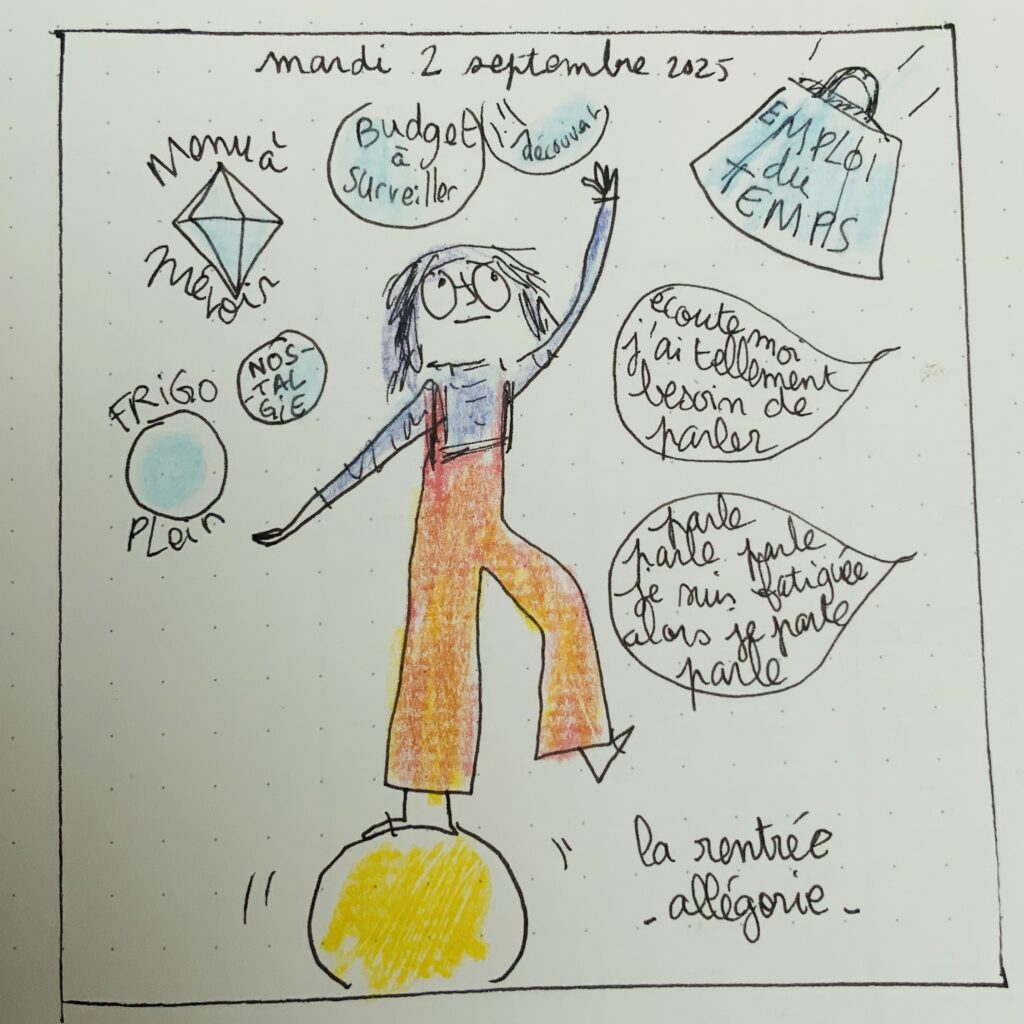 mardi 2 septembre 2025
Menu à
prévoir
Budget
à
surveiller
découvert
EMPLOI
du
TEMPS
NOS-
TAL
GIE
FRiGO
PLein
écoute moi
j'ai tellement
besoin de
parler
parle
parle parle
je suis fatiguée
alors je parle
parle
la rentrée
- allégorie -